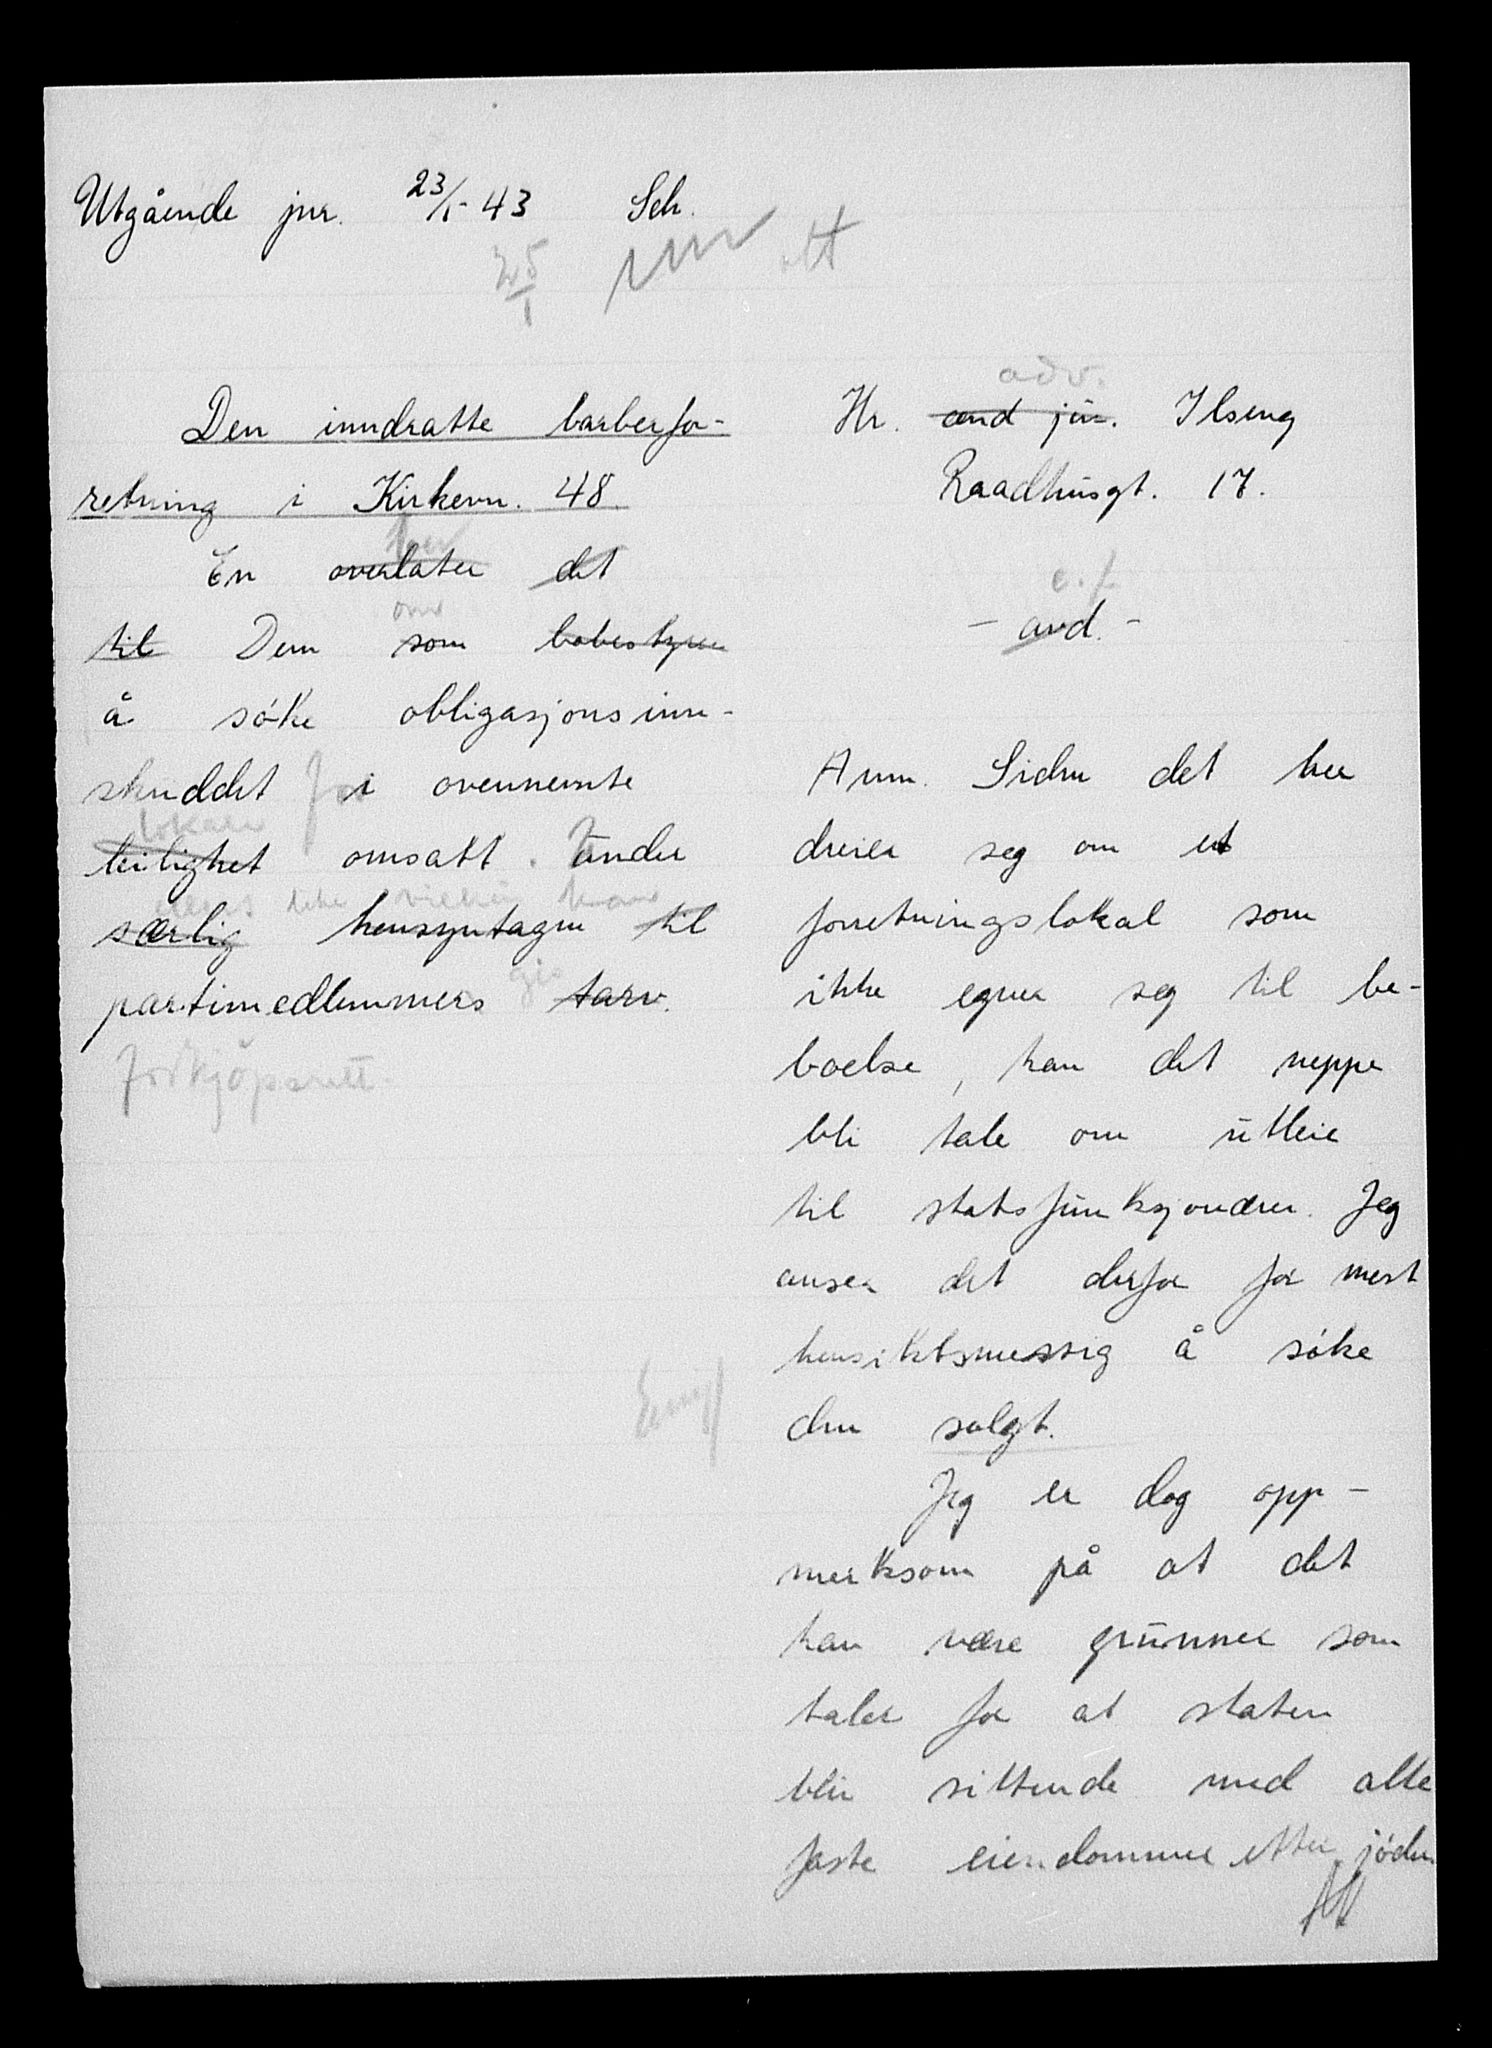 Utgående jnr. 23/1-43 Sch.
25/1
adv.
Hr. cand jur. Ilseng
Raadhusgt. 17.
e.f.
- avd. -
Den inndratte barberfor-
retning i Kirkevn. 48.
ber
En overlater det
om
til Dem som bobestyrer
å søke obligasjonsinn-
skuddet for i ovennevnte
lokaler
leilighet omsatt. Under
ellers like vilkår kan
særlig hensyntagen til
gis
partimedlemmers tarv.
forkjöpsrett.
Anm. Siden det her
dreier seg om et
forretningslokal som
ikke egner seg til be-
boelse, kan det neppe
bli tale om utleie
til statsfunksjonærer. Jeg
anser det derfor for mest
hensiktsmessig å søke
den solgt.
Jeg er dog opp-
merksom på at det
kan være grunner som
taler for at staten
blir sittende med alle
faste eiendommer etter jøder